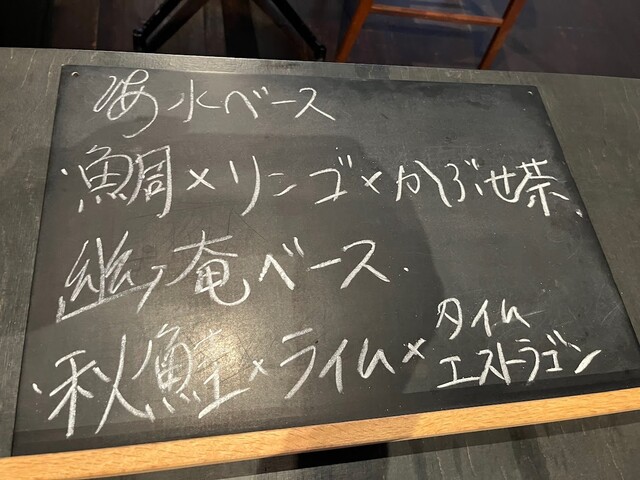 海水ベース
・鯛×リンゴ×かぶせ茶
幽庵ベース
・秋鮭×ライム×タイム
エストラゴン